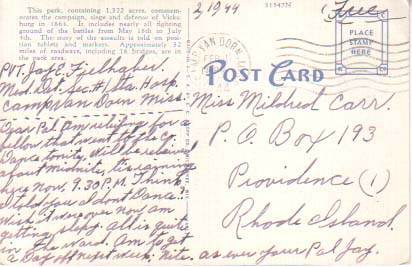 This park, containing 1,322 acres, commem-
orates the campaign, siege and defense of Vicks-
burg in 1863. It includes nearly all fighting
ground of the battles from May 18th to July
4th. The story of the soldiers is told on posi-
tion tablets and markers. Approximately 32
miles of roadway, including 16 bridges, are in
the park area.
2, 1944
Free
PLACE
STAMP
HERE
VAN DORN
POST CARD
Pvt. Jay
Med. Det. Sta. Hosp.
Camp Van Dorn Miss.
Dear Pal. Am relieving for a
fellow that went to his Co.
Dance tonite, will be relieved
about midnite, it's raining
here now, 9.30 P.M. Think
I told you about Dance.
Wish it were over now am
getting sleepy. all is quite
in the ward. Am to get
a Day off next week. Nite. as ever your Pal Jay.
Miss Mildred Carr.
P. O. Box 193
Providence (1)
Rhode Island.